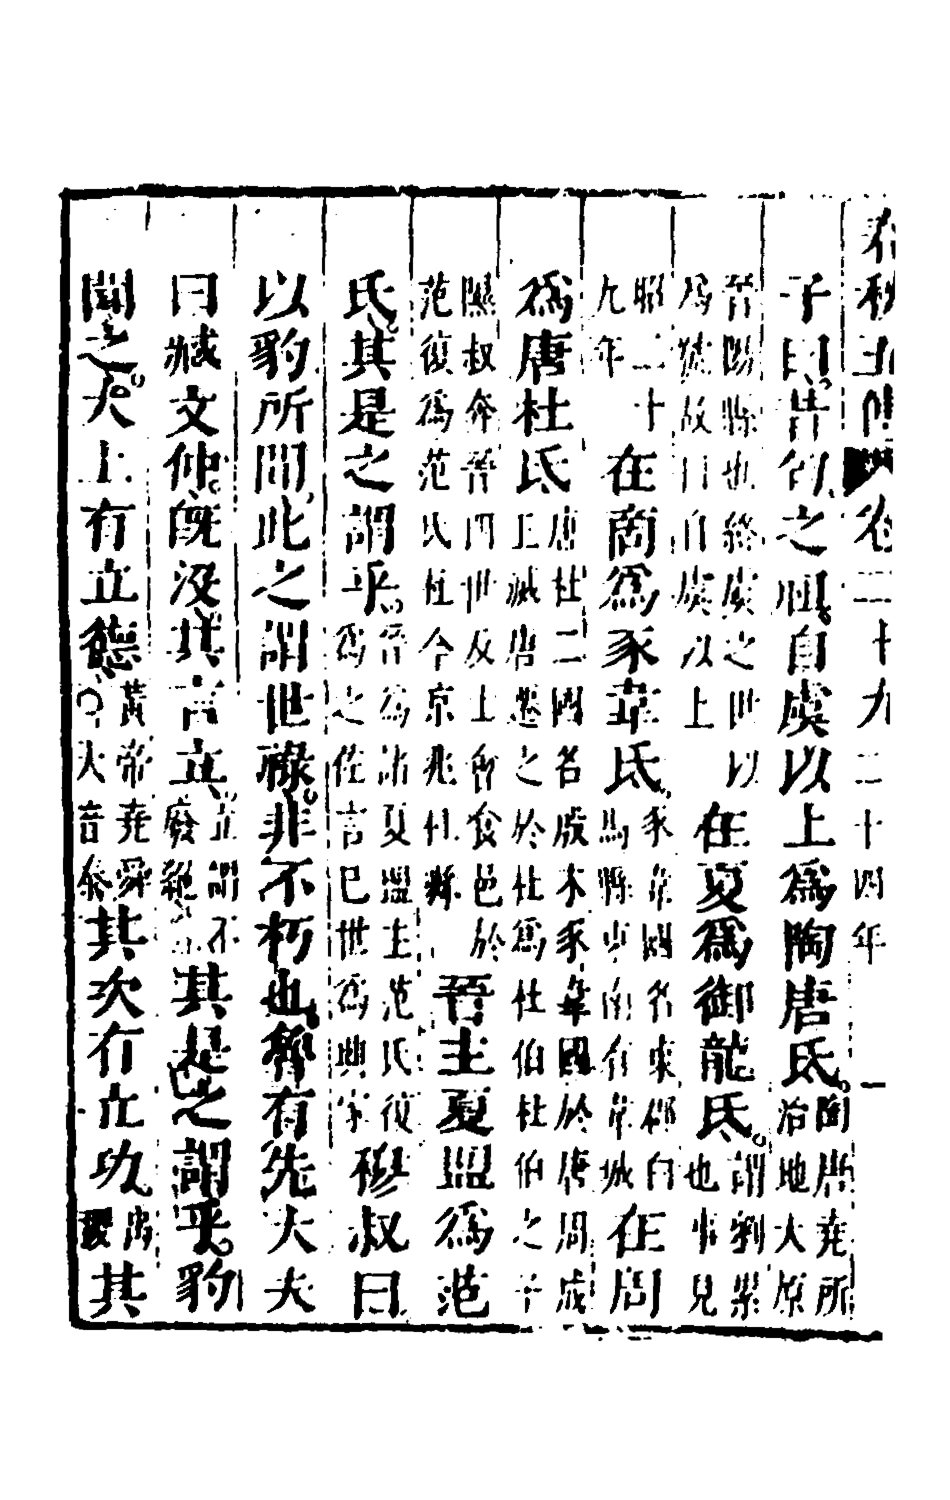 春秋五傳 卷二十九 二十四年 一
子曰昔匄之祖自虞以上爲陶唐氏陶唐堯所治地大原
晉陽縣也終虞之世以爲號故曰自虞以上在夏爲御龍氏謂劉累也事見
昭二十九年在商爲豕韋氏豕韋國名東郡白馬縣東南有韋城在周
爲唐杜氏唐杜二國名殷末豕韋國於唐周成王滅唐遷之於杜爲杜伯杜伯之子
隰叔奔晉四世反士會食邑於范復爲范氏杜今京兆杜縣晉主夏盟爲范
氏其是之謂乎晉爲諸夏盟主范氏復爲之佐言已世爲興家穆叔曰
以豹所聞此之謂世祿非不朽也魯有先大夫
曰臧文仲旣沒其言立立謂不廢絶其是之謂乎豹
聞之大上有立德黃帝堯舜○大音泰其次有立功禹稷其